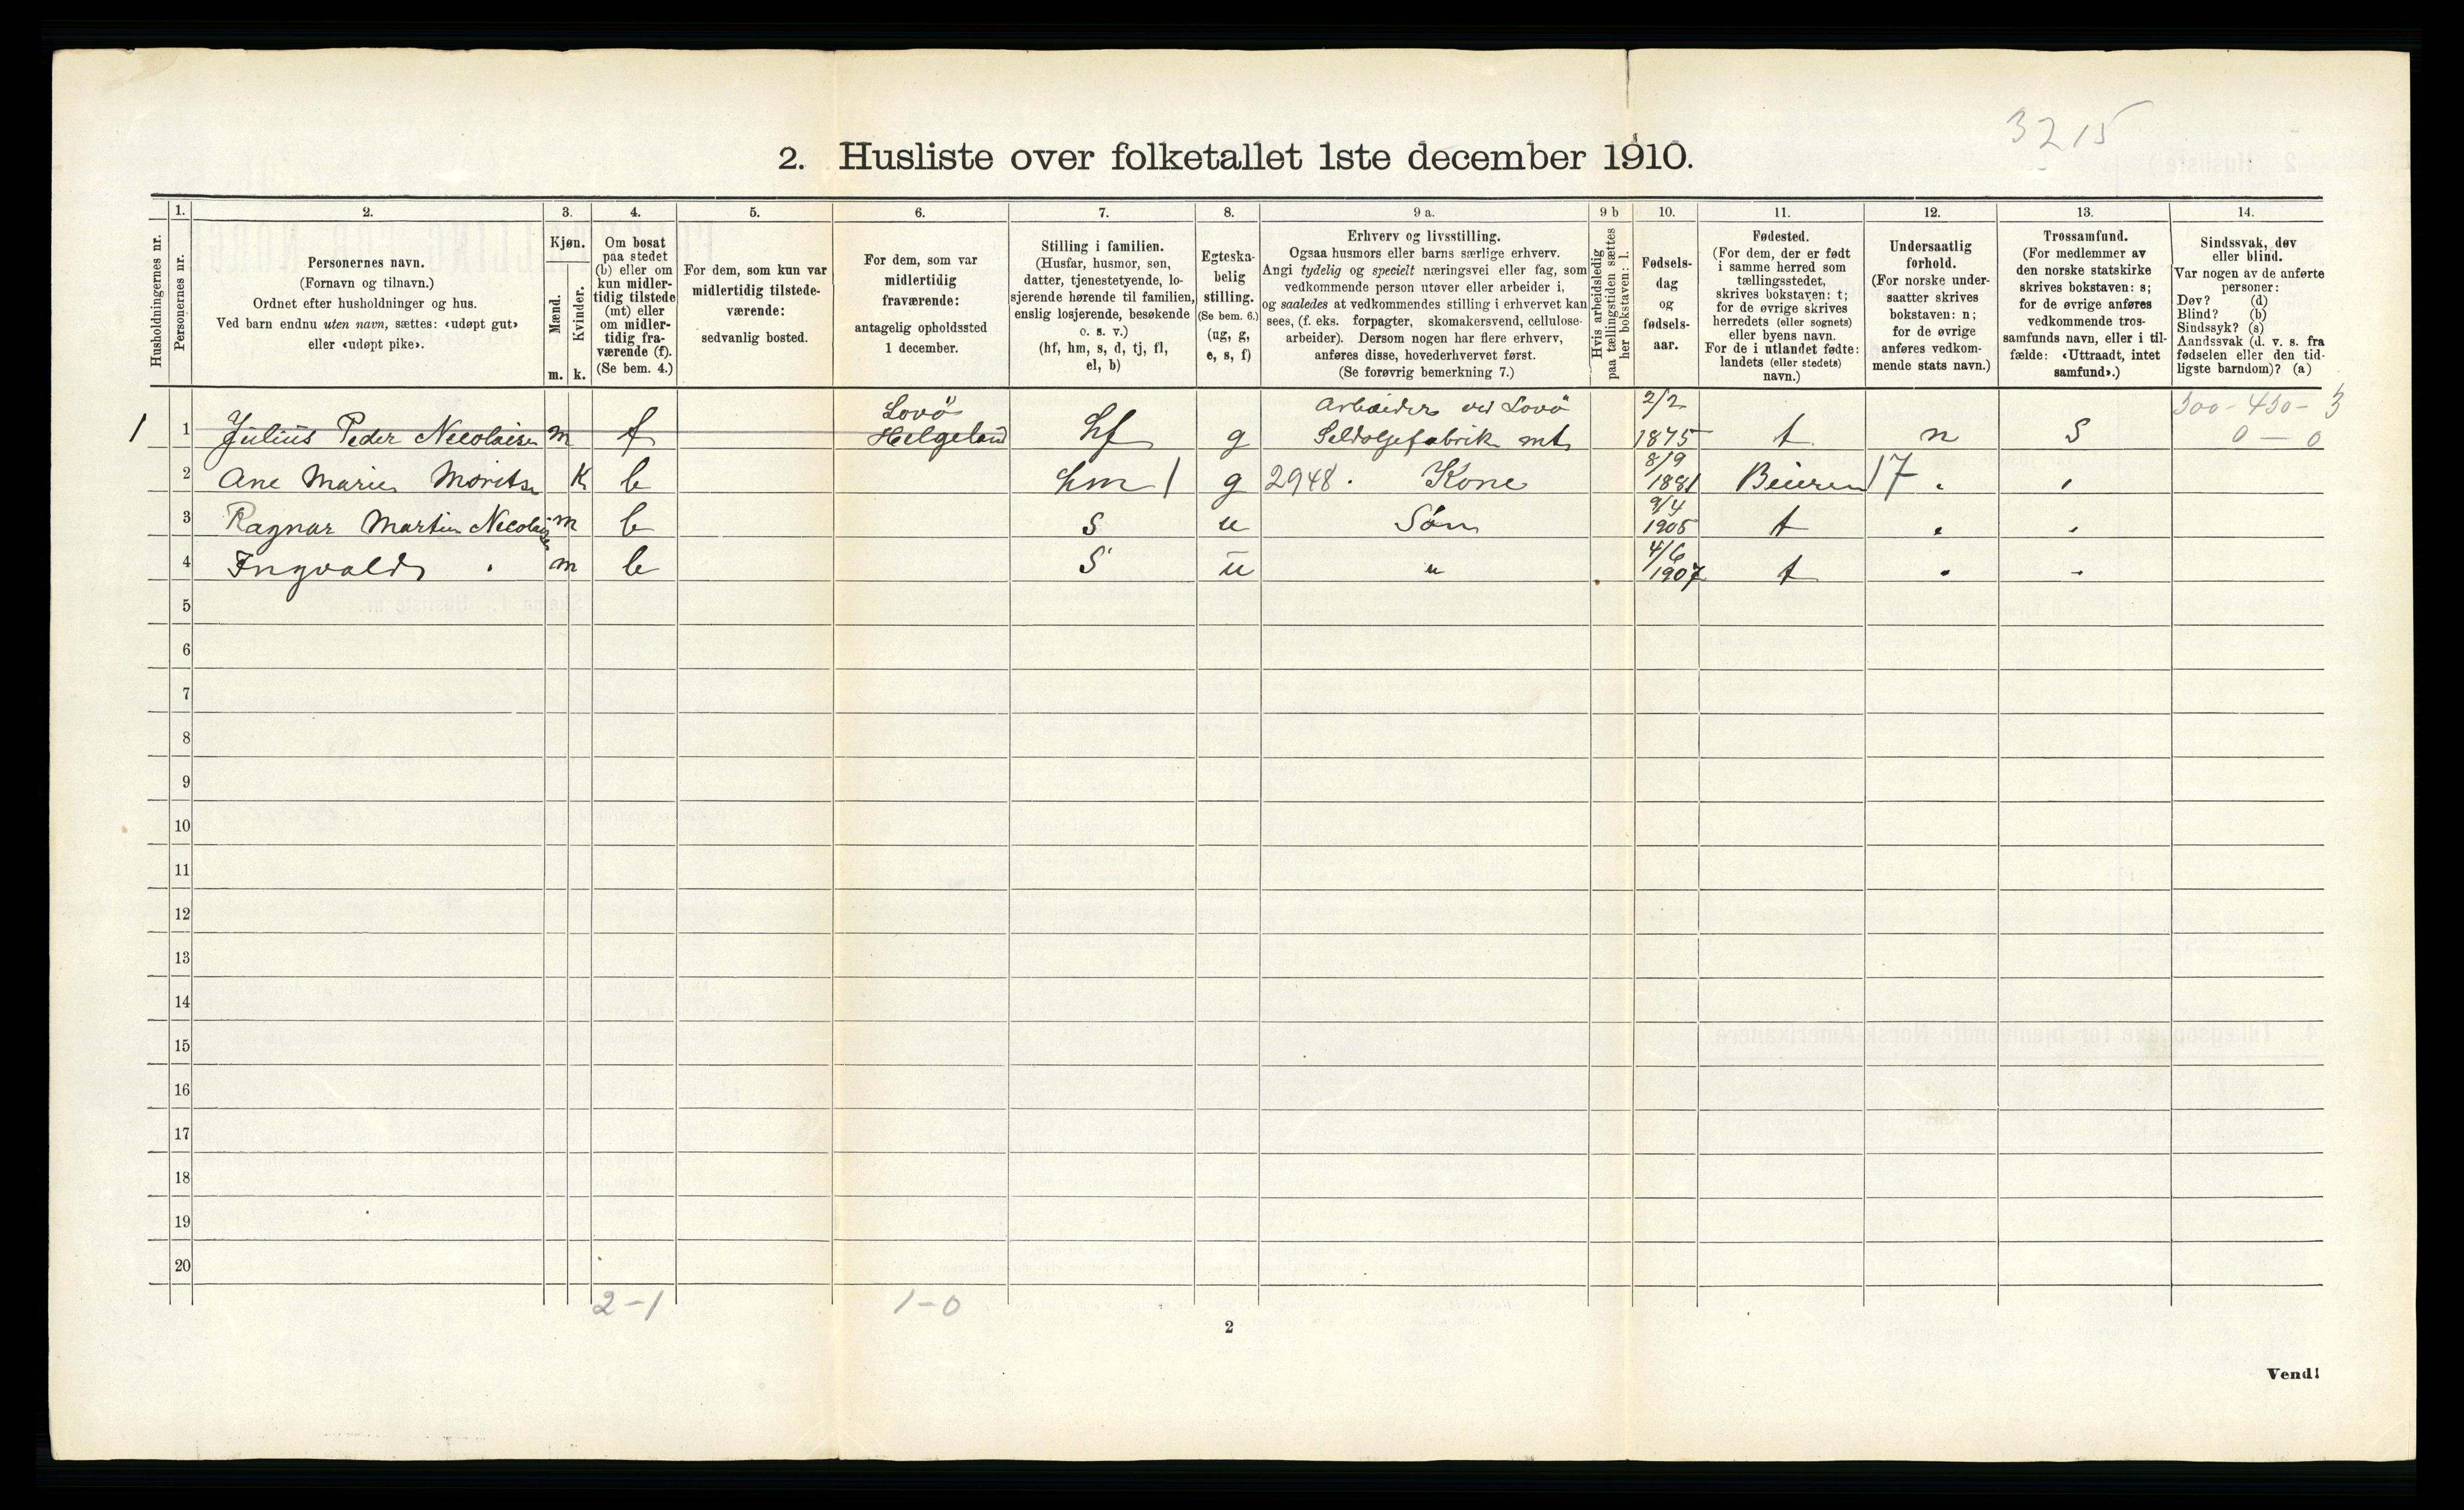 3215
2. Husliste over folketallet 1ste december 1910.
Husholdningernes nr.
1.
Personernes nr.
2.
Personernes navn.
(Fornavn og tilnavn.)
Ordnet efter husholdninger og hus.
Ved barn endnu uten navn, sættes: «udøpt gut»
eller «udøpt pike».
3.
Kjøn.
Mænd.
Kvinder.
m. k.
4.
Om bosat
paa stedet
(b) eller om
kun midler-
tidig tilstede
(mt) eller
om midler-
tidig fra-
værende (f).
(Se bem. 4.)
5.
For dem, som kun var
midlertidig tilstede-
værende:
sedvanlig bosted.
6.
For dem, som var
midlertidig
fraværende:
antagelig opholdssted
1 december.
7.
Stilling i familien.
(Husfar, husmor, søn,
datter, tjenestetyende, lo-
sjerende hørende til familien,
enslig losjerende, besøkende
o. s. v.)
(hf, hm, s, d, tj, fl,
el, b)
8.
Egteska-
belig
stilling.
(Se bem. 6.)
(ug, g,
e, s, f)
9 a.
Erhverv og livsstilling.
Ogsaa husmors eller barns særlige erhverv.
Angi tydelig og specielt næringsvei eller fag, som
vedkommende person utøver eller arbeider i,
og saaledes at vedkommendes stilling i erhvervet kan
sees, (f. eks. forpagter, skomakersvend, cellulose-
arbeider). Dersom nogen har flere erhverv,
anføres disse, hovederhvervet først.
(Se forøvrig bemerkning 7.)
9 b
Hvis arbeidsledig
paa tællingstiden sættes
her bokstaven: l.
10.
Fødsels-
dag
og
fødsels-
aar.
11.
Fødested.
(For dem, der er født
i samme herred som
tællingsstedet,
skrives bokstaven: t;
for de øvrige skrives
herredets (eller sognets)
eller byens navn.
For de i utlandet fødte:
landets (eller stedets)
navn.)
12.
Undersaatlig
forhold.
(For norske under-
saatter skrives
bokstaven: n;
for de øvrige
anføres vedkom-
mende stats navn.)
13.
Trossamfund.
(For medlemmer av
den norske statskirke
skrives bokstaven: s;
for de øvrige anføres
vedkommende tros-
samfunds navn, eller i til-
fælde: «Uttraadt, intet
samfund».)
14.
Sindssvak, døv
eller blind.
Var nogen av de anførte
personer:
Døv? (d)
Blind? (b)
Sindssyk? (s)
Aandssvak (d. v. s. fra
fødselen eller den tid-
ligste barndom)? (a)
Lovö Arbeider ved Lovö 2/2 500-450-3
1 1 Julius Peder Nicolaisen m f Helgeland hf g Seldoljefabrik mt 1875 t n S 0-0
8/9
2 Ane Marie Morits k b hm 1 g 2948. Kone 1881 Beieren 17 " "
9/4
3 Ragnar Martin Nicolaisen m b s u Søn 1905 t " "
4/6
4 Ingvald " m b S u " 1907 t " "
5
6
7
8
9
10
11
12
13
14
15
16
17
18
19
20
2-1 1-0
2
Vend!